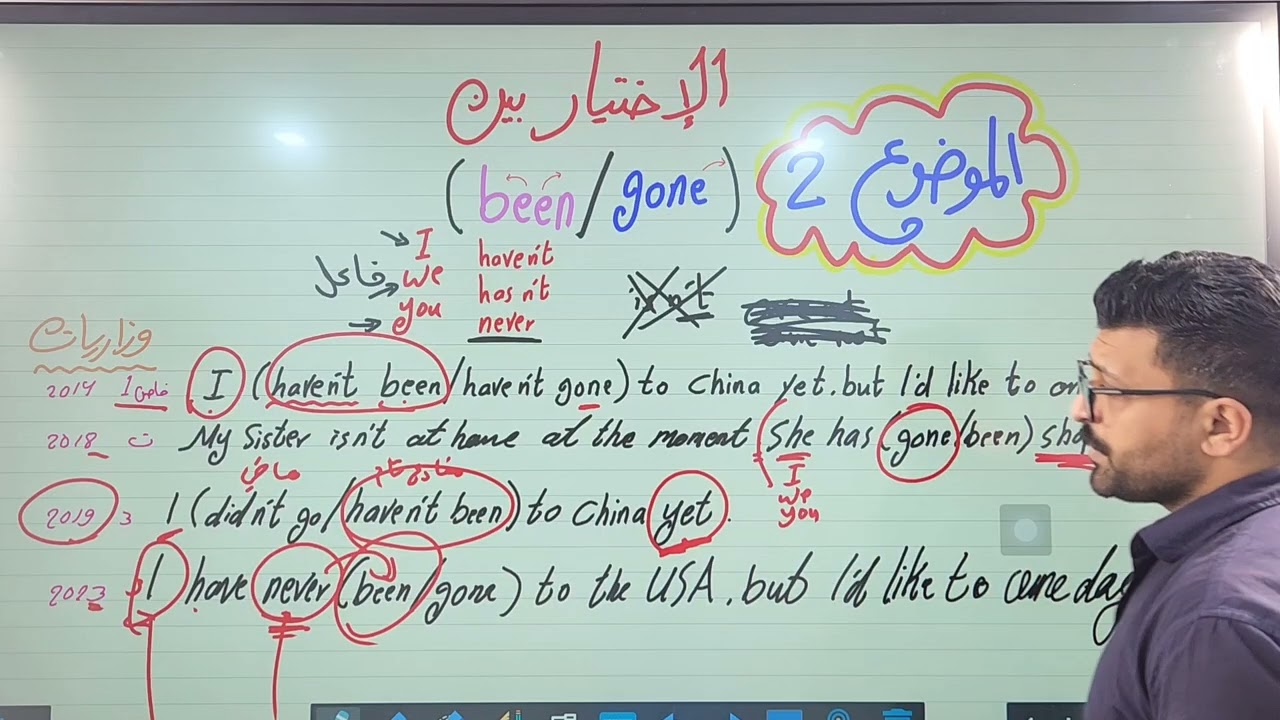 الإختيار بين
(been/gone)
الموضوع 2
فاعل
I
we
you
haven't
hasn't
never
وزاريات
2014 خاص 1 I (haven't been/haven't gone) to China yet. but I'd like to on
2018 ت My Sister isn't at home at the moment She has (gone/been) sho
ماضي
مضارع تام
I
we
you
2019 د 1 I (didn't go/haven't been) to China yet.
2023 I have never (been/gone) to the USA. but I'd like to come day